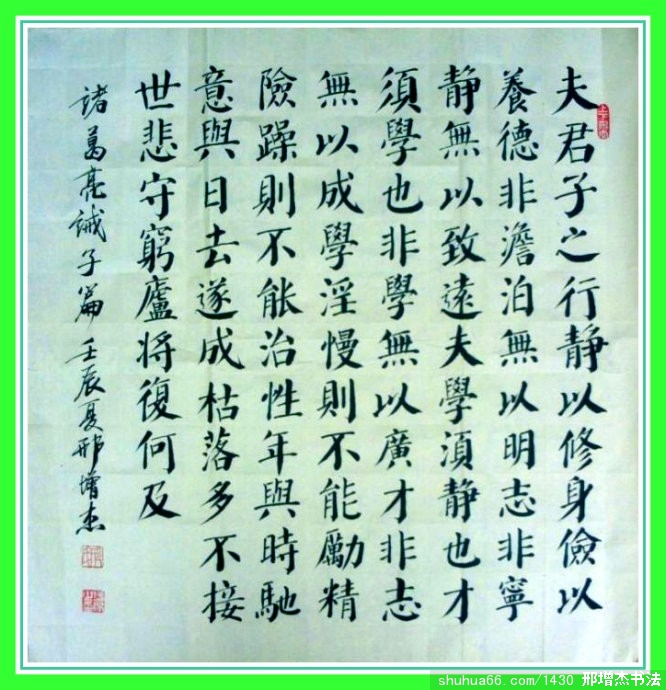 夫君子之行静以修身儉以
養德非澹泊無以明志非寧
静無以致遠夫學須静也才
須學也非學無以廣才非志
無以成學淫慢則不能勵精
險躁則不能治性年與時馳
意與日去遂成枯落多不接
世悲守窮廬将復何及
諸葛亮誡子篇 壬辰夏邢增杰
shuhua66.com/1430 邢增杰书法